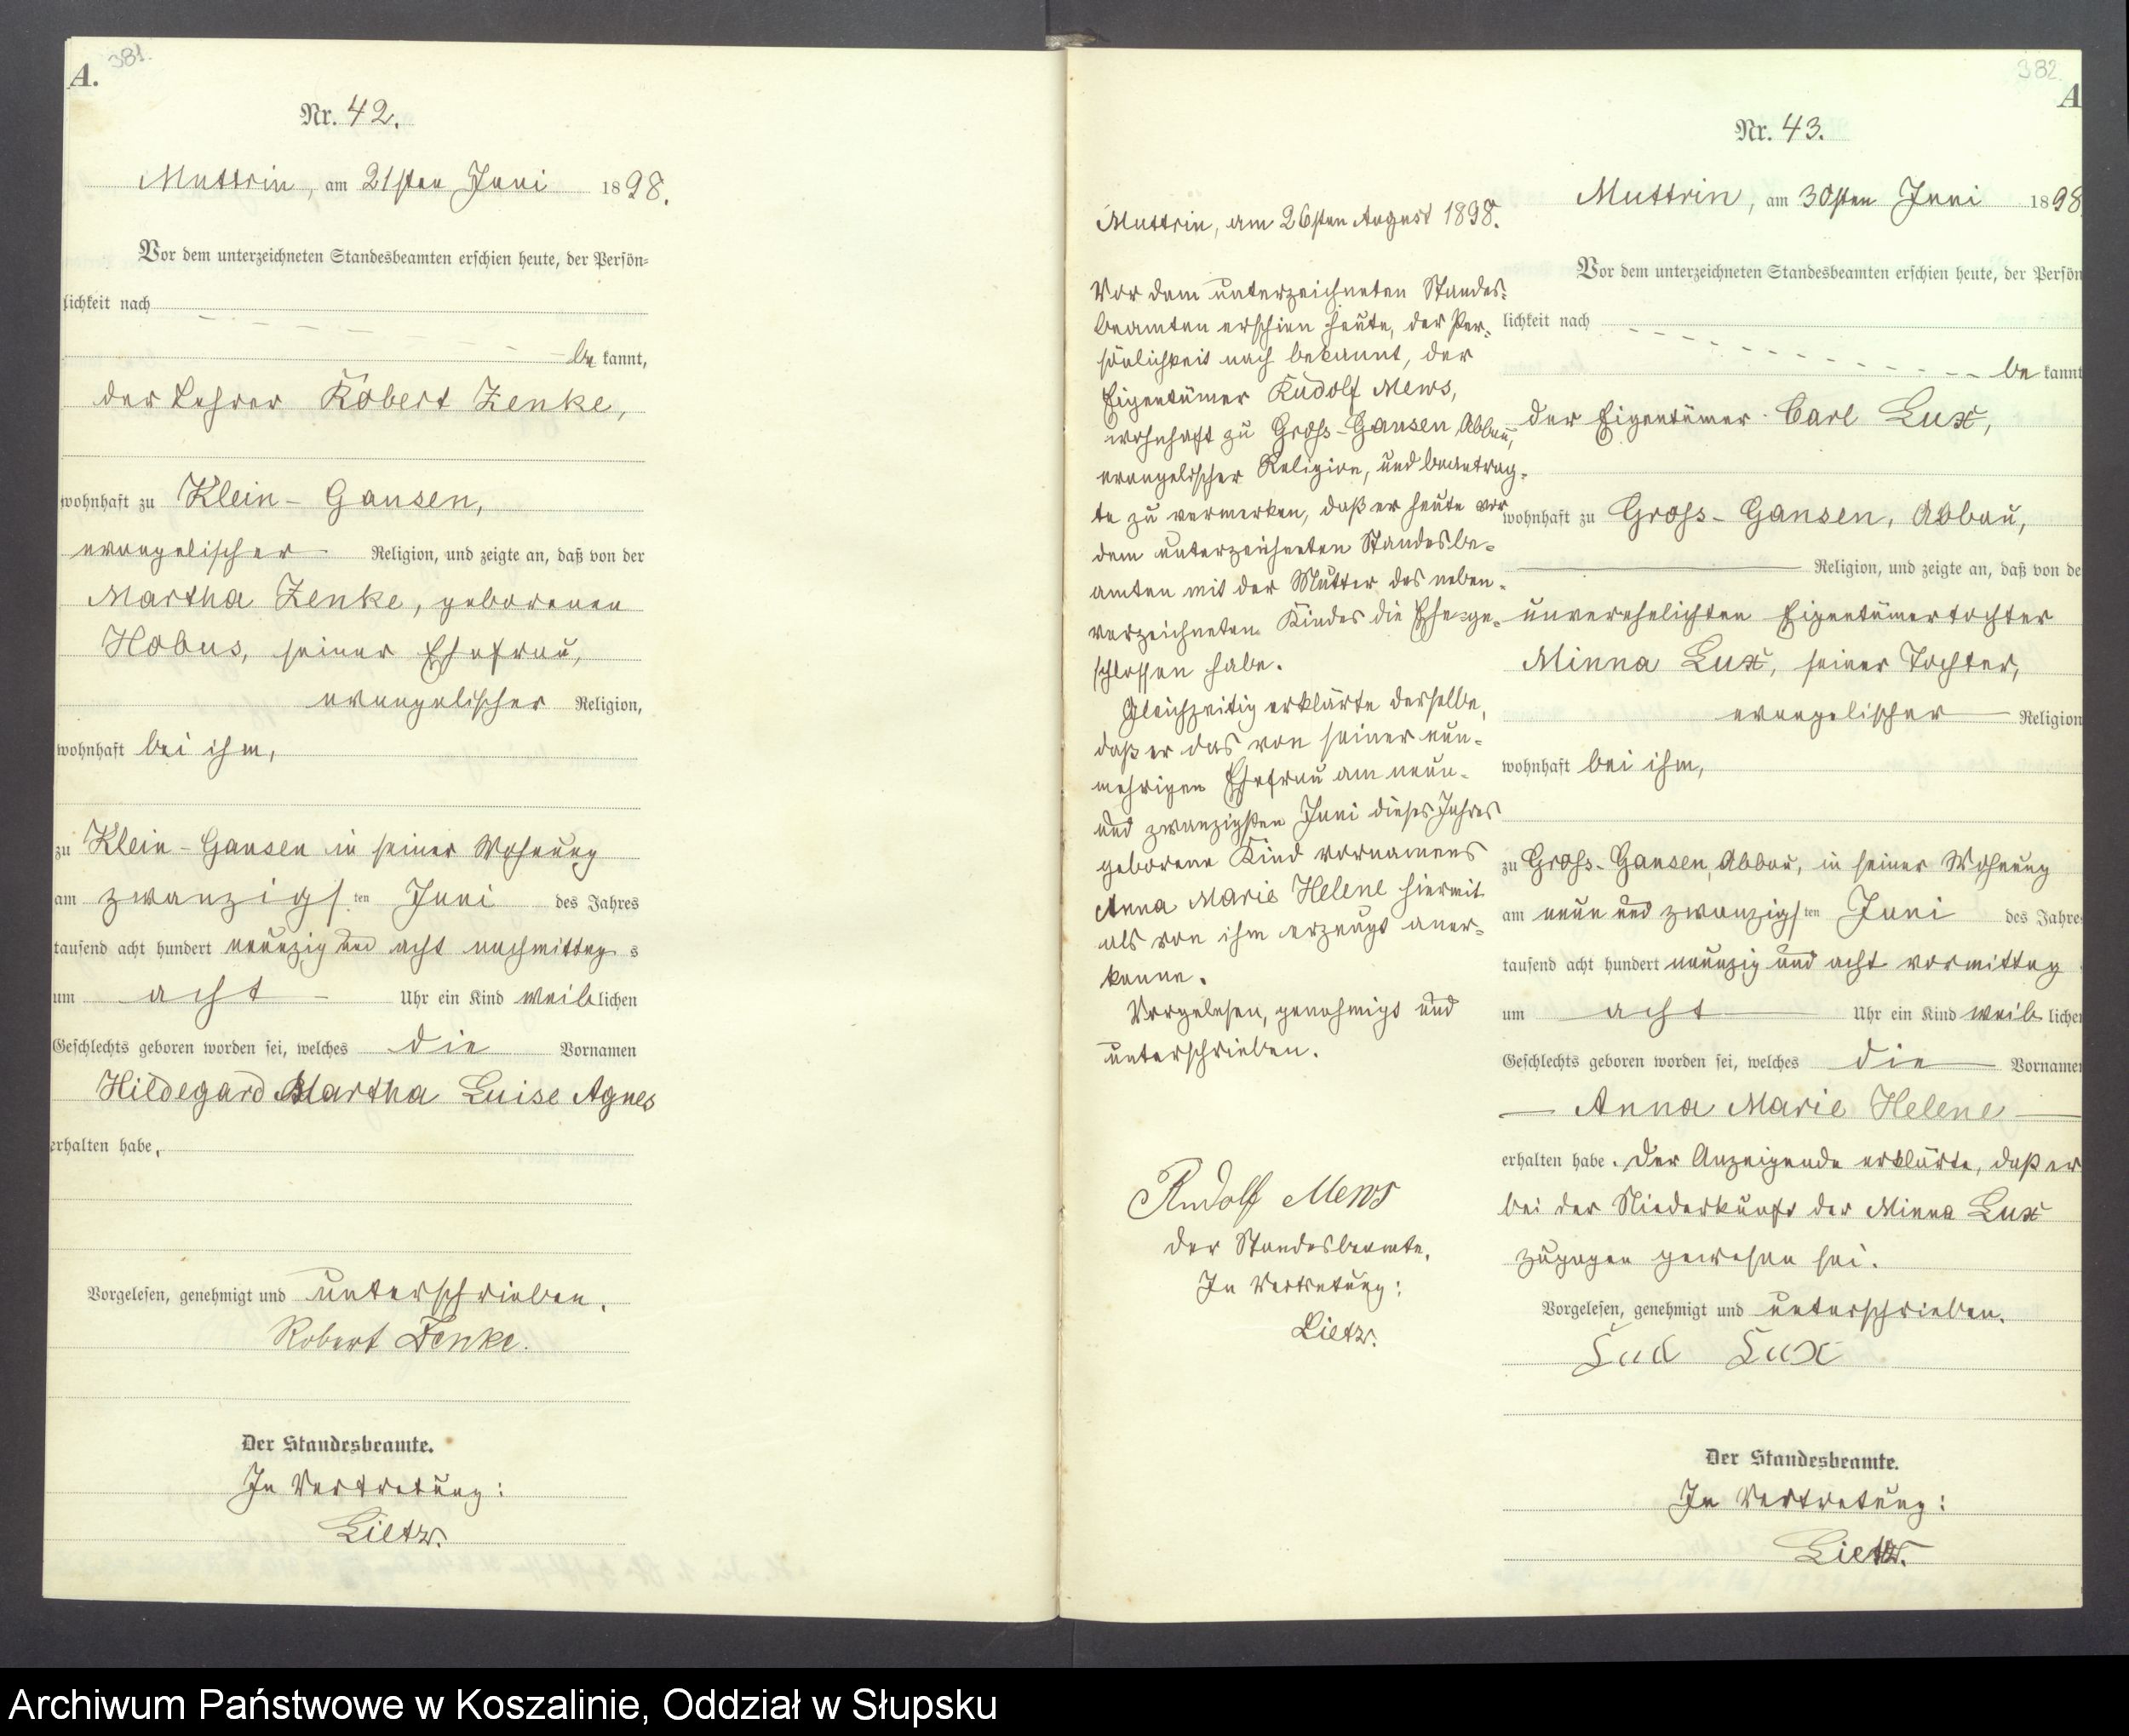 A.
381.
Nr. 42.
Muttrin, am 21sten Juni 1898.
Vor dem unterzeichneten Standesbeamten erschien heute, der Persön-
lichkeit nach
be kannt,
der Lehrer Robert Zenke,
wohnhaft zu Klein-Gansen,
evangelischer Religion, und zeigte an, daß von der
Martha Zenke, geborenen
Hobus, seiner Ehefrau,
evangelischer Religion,
wohnhaft bei ihm,
zu Klein-Gansen in seiner Wohnung
am zwanzigsten Juni des Jahres
tausend acht hundert neunzig und acht nachmittags
um acht Uhr ein Kind weiblichen
Geschlechts geboren worden sei, welches die Vornamen
Hildegard Martha Luise Agnes
erhalten habe.
Vorgelesen, genehmigt und unterschrieben.
Robert Zenke.
Der Standesbeamte.
In Vertretung:
Lietz.
Muttrin, am 26sten August 1898.
Vor dem unterzeichneten Standes-
beamten erschien heute, der Per-
sönlichkeit nach bekannt, der
Eigentümer Rudolf Mews,
wohnhaft zu Groß-Gansen Abbau,
evangelischer Religion, und beantrag-
te zu vermerken, daß er heute vor
dem unterzeichneten Standesbe-
amten mit der Mutter des neben-
verzeichneten Kindes die Ehe ge-
schlossen habe.
Gleichzeitig erklärte derselbe,
daß er das von seiner nun-
mehrigen Ehefrau am neun-
und zwanzigsten Juni dieses Jahres
geborene Kind vornamens
Anna Marie Helene hiermit
als von ihm erzeugt aner-
kenne.
Vorgelesen, genehmigt und
unterschrieben.
Rudolf Mews
Der Standesbeamte.
In Vertretung:
Lietz.
382.
A
Nr. 43.
Muttrin, am 30sten Juni 1898
Vor dem unterzeichneten Standesbeamten erschien heute, der Persön
lichkeit nach
be kannt
der Eigentümer Carl Lux,
wohnhaft zu Groß-Gansen, Abbau,
Religion, und zeigte an, daß von de
unverehelichten Eigentümertochter
Minna Lux, seiner Tochter,
evangelischer Religion
wohnhaft bei ihm,
zu Groß-Gansen, Abbau, in seiner Wohnung
am neun und zwanzigsten Juni des Jahres
tausend acht hundert neunzig und acht vormittag
um acht Uhr ein Kind weiblichen
Geschlechts geboren worden sei, welches die Vornamen
Anna Marie Helene
erhalten habe. Der Anzeigende erklärte, daß er
bei der Niederkunft der Minna Lux
zugegen gewesen sei.
Vorgelesen, genehmigt und unterschrieben.
Lux
Der Standesbeamte.
In Vertretung:
Lietz.
Archiwum Państwowe w Koszalinie, Oddział w Słupsku